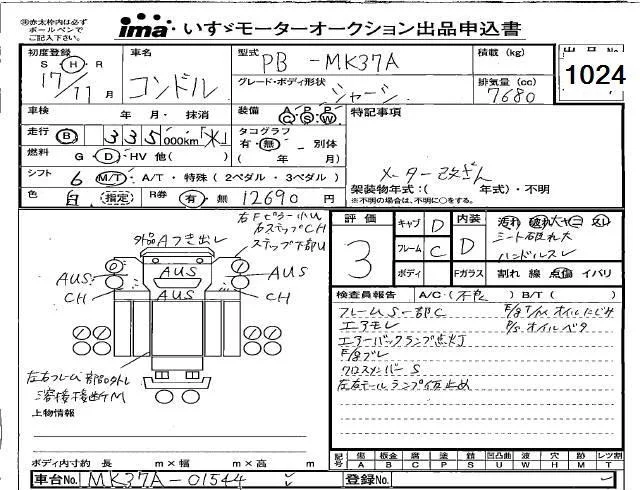 ㊟赤太枠内は必ず
ボールペンで
ご記入下さい。
ima・いすゞモーターオークション出品申込書
初度登録 S・H・R
17/11月
車名
コンドル
型式
PB-MK37A
積載 (kg)
出品No
1024
グレード・ボディ形状
シャーシ
排気量 (cc)
7680
車検 年 月・抹消
装備 AC PS PW
特記事項
走行 B 335 000km「メ」
タコグラフ 有・無・別体
( 年 月)
燃料 G・D・HV 他( )
メーター改ざん
シフト 6 M/T・A/T・特殊(2ペダル・3ペダル)
架装物年式:( 年式)・不明
※不明の場合は、不明に○をする。
色 白 (指定) R券 有・無 12690 円
右FピラーハU
右ステップCH
ステップ下部U
外品Aつき出し
AUS AUS AUS
CH AUS CH
左右フレーム部品外し
溶接検出TM
評価 3
キャブ D
フレーム C
ボディ
内装 D
Fガラス
汚れ 破れ大ヤニ スレ
シート破れ大
ハンドルスレ
割れ 線 点傷 イバリ
検査員報告 A/C・(不良) B/T( )
フレームS一部C
エアモレ
エアーバックランプ点灯
クロスメンバーS
左右モールランプ仮止め
オイルにじみ
P/S オイルベタ
上物情報
ボディ内寸約 長 m×幅 m×高 m
記号 傷 板金 腐 塗 錆 凹凸曲 波 穴 跡 レツ割
A B C P S U W H M T
車台No. MK37A-01544
登録No.